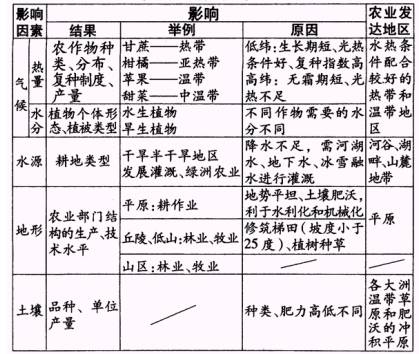 影响因素 影响 农业发达地区
结果 举例 原因
气候 热量 农作物种类、分布、复种制度、产量
甘蔗——热带
柑橘——亚热带
苹果——温带
甜菜——中温带
低纬:生长期短、光热
条件好、复种指数高
高纬:无霜期短、光
热不足
水热条件配合较好的热带和温带地区
水分 植物个体形态、植被类型
水生植物
旱生植物
不同作物需要的水
分不同
水源 耕地类型
干旱半干旱地区
发展灌溉、绿洲农业
降水不足,需河湖
水、地下水、冰雪融
水进行灌溉
河谷、湖
畔、山麓
地带
地形 农业部门结
构的生产、技
术水平
平原:耕作业
地势平坦、土壤肥沃,
利于水利化和机械化
丘陵、低山:林业、牧业
修筑梯田(坡度小于
25度)、植树种草
山区:林业、牧业
平原
土壤 品种、单位
产量
种类、肥力高低不同
各大洲
温带草
原和肥
沃的冲
积平原